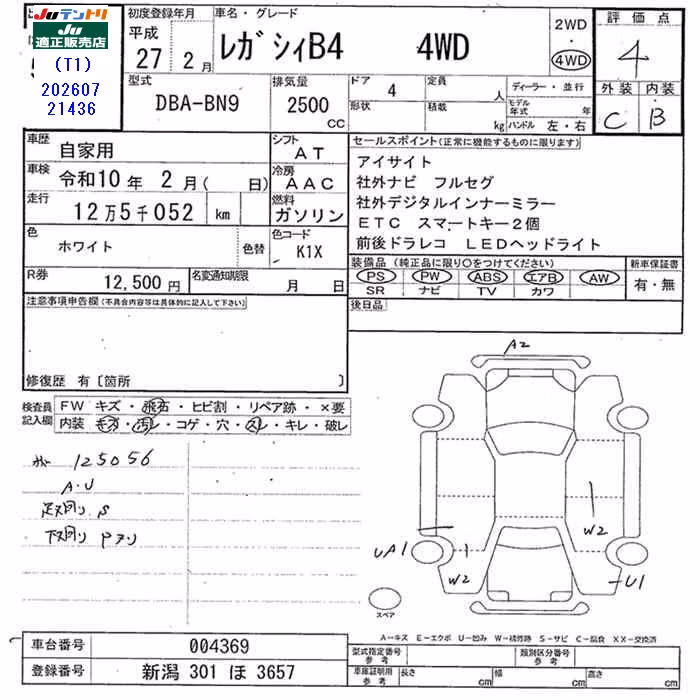 JU テントリ
JU 適正販売店
(T1)
202607
21436
初度登録年月 車名・グレード
平成 27 2月
レガシィB4 4WD
2WD ・ 4WD
評価点 4
外装 内装
C B
型式 DBA-BN9
排気量 2500 CC
ドア 4 定員 人
形状 積載 kg
ディーラー・並行
モデル年式 年
ハンドル 左・右
車歴 自家用
シフト AT
車検 令和10年 2月( 日)
冷房 AAC
走行 12万5千052 km
燃料 ガソリン
色 ホワイト 色替
色コード K1X
R券 12,500円
名変通知期限 月 日
セールスポイント(正常に機能するものに限ります)
アイサイト
社外ナビ フルセグ
社外デジタルインナーミラー
ETC スマートキー2個
前後ドラレコ LEDヘッドライト
装備品(純正品に限り○をつけてください)
PS PW ABS エアB AW
SR ナビ TV カワ
新車保証書
有・無
後日品
注意事項申告欄(不具合内容等は具体的に記入して下さい)
修復歴 有〔箇所 〕
検査員記入欄
FW キズ・飛石・ヒビ割・リペア跡・×要
内装 キズ・汚レ・コゲ・穴・スレ・キレ・破レ
125056
A・U
足回り S
下回り Pヌリ
A2
W2
UA1
W2
U1
スペア
A―キズ E―エクボ U―凹み W―補修跡 S―サビ C―腐食 XX―交換済
車台番号 004369
登録番号 新潟 301 ほ 3657
型式指定番号 参考
類別区分番号 参考
車庫証明用 参考
長さ cm 幅 cm 高さ cm